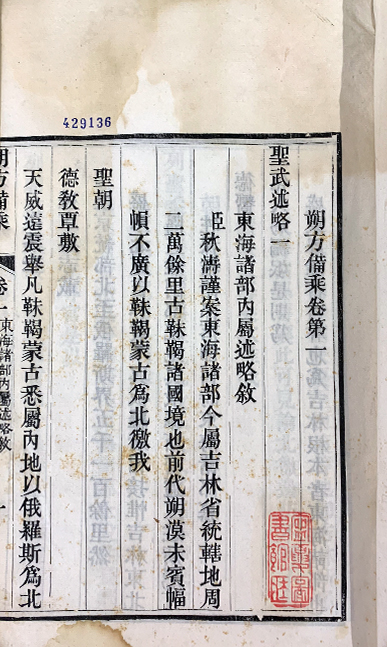 429136
朔方備乘卷第一
聖武述略一
東海諸部內屬述略敘
臣秋濤謹案東海諸部今屬吉林省統轄地周
二萬餘里古靺鞨諸國境也前代朔漠未賓幅
幀不廣以靺鞨蒙古為北徼我
聖朝
德教覃敷
天威遠震舉凡靺鞨蒙古悉屬內地以俄羅斯為北
朔方備乘 卷一東海諸部內屬述略敘 一